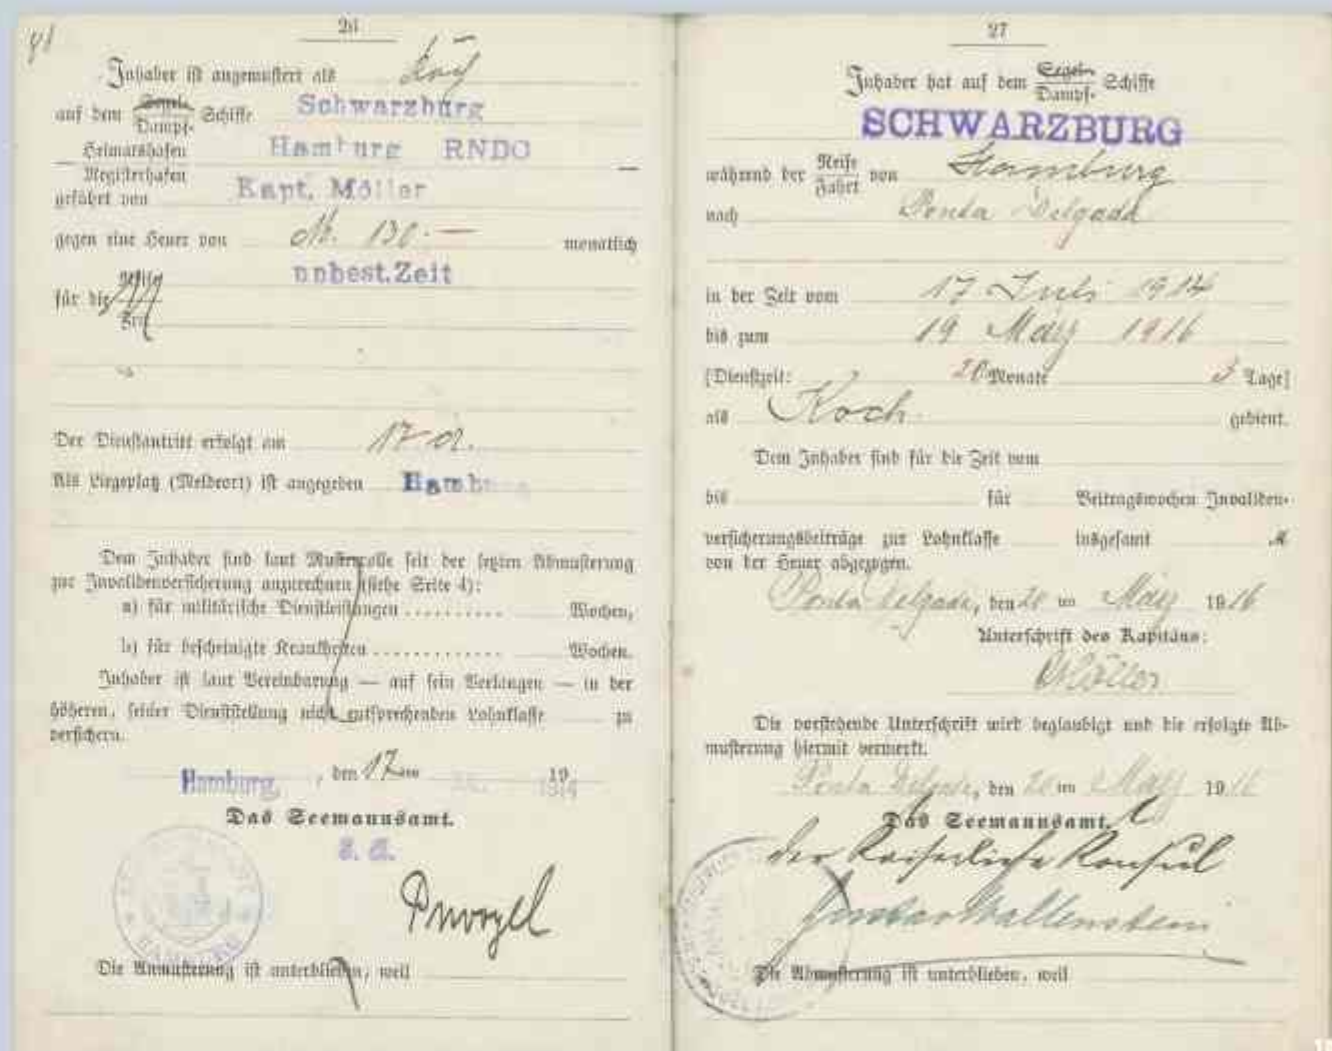 26
Inhaber ist angemustert als Koch
auf dem Segel- Dampf- Schiffe Schwarzburg
Heimatshafen Hamburg RNDO
Registerhafen
geführt von Kapt. Möller
gegen eine Heuer von M. 130.— monatlich
unbest. Zeit
für die
Zeit
Der Dienstantritt erfolgt am 17 d.
Als Liegeplatz (Meldeort) ist angegeben Hamburg
Dem Inhaber sind laut Musterrolle seit der letzten Abmusterung
zur Invalidenversicherung anzurechnen (siehe Seite 4):
a) für militärische Dienstleistungen .......... Wochen,
b) für bescheinigte Krankheiten ............ Wochen.
Inhaber ist laut Vereinbarung — auf sein Verlangen — in der
höheren, seiner Dienststellung nicht entsprechenden Lohnklasse zu
versichern.
Hamburg, , den 17ten 1914
Das Seemannsamt.
Die Anmusterung ist unterblieben, weil
27
Inhaber hat auf dem Segel- Dampf- Schiffe
SCHWARZBURG
während der Reise Fahrt von Hamburg
nach Ponta Delgada
in der Zeit vom 17 Juli 1914
bis zum 19 März 1916
[Dienstzeit: 20 Monate 3 Tage]
als Koch gedient.
Dem Inhaber sind für die Zeit vom
bis für Beitragswochen Invaliden-
versicherungsbeiträge zur Lohnklasse insgesamt M
von der Heuer abgezogen.
Ponta Delgada, den 20ten März 1916
Unterschrift des Kapitäns:
Möller
Die vorstehende Unterschrift wird beglaubigt und die erfolgte Ab-
musterung hiermit vermerkt.
Ponta Delgada, den 20ten März 1916
Das Seemannsamt.
der Kaiserliche Konsul
Wallenstein
Die Abmusterung ist unterblieben, weil